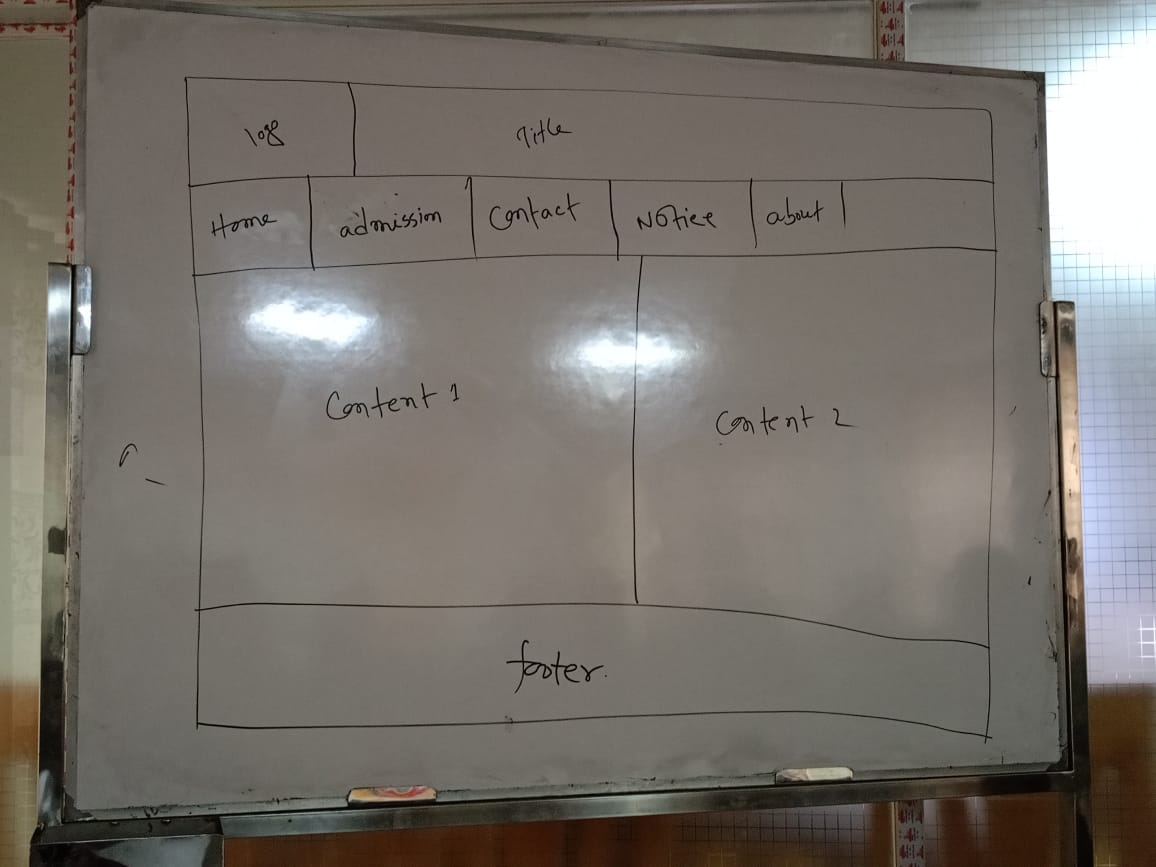 logo
Title
Home admission Contact Notice about
Content 1
Content 2
footer.